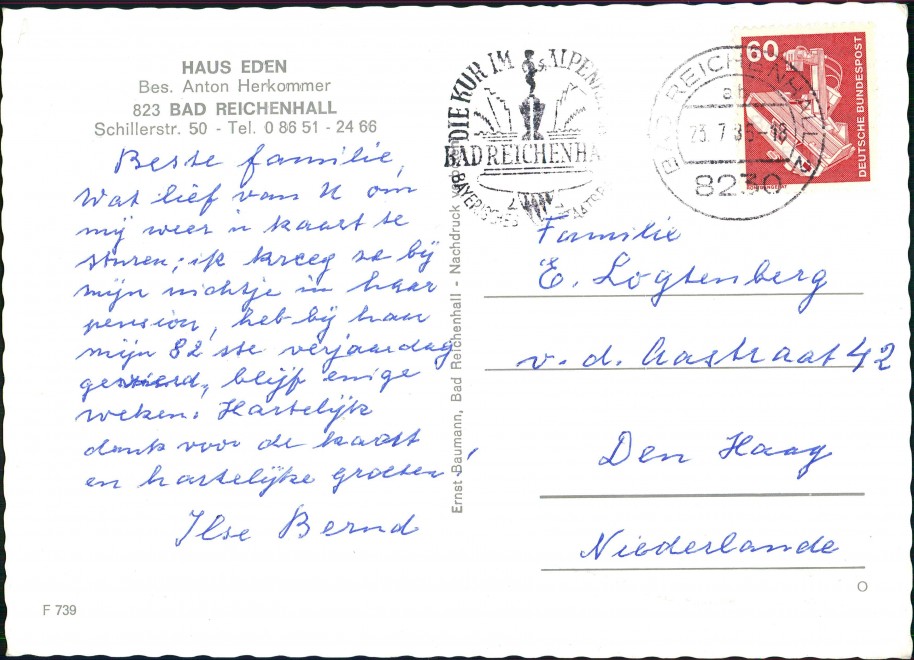 HAUS EDEN
Bes. Anton Herkommer
823 BAD REICHENHALL
Schillerstr. 50 - Tel. 0 86 51 - 24 66
Beste familie,
Wat lief van U om
mij weer 'n kaart te
sturen; ik kreeg ze bij
mijn nichtje in haar
pension, heb bij haar
mijn 82 ste verjaardag
gevierd, blijf enige
weken. Hartelijk
dank voor de kaart
en hartelijke groeten!
Ilse Bernd
F 739
Ernst Baumann, Bad Reichenhall - Nachdruck
DIE KUR IM ALPEN
BAD REICHENHA
BAYERISCHES STAATSB
BAD REICHENHALL
ah
23. 7. 8 -18
8230
60
DEUTSCHE BUNDESPOST
Familie
E. Logtenberg
v. d. Aastraat 42
Den Haag
Niederlande
O